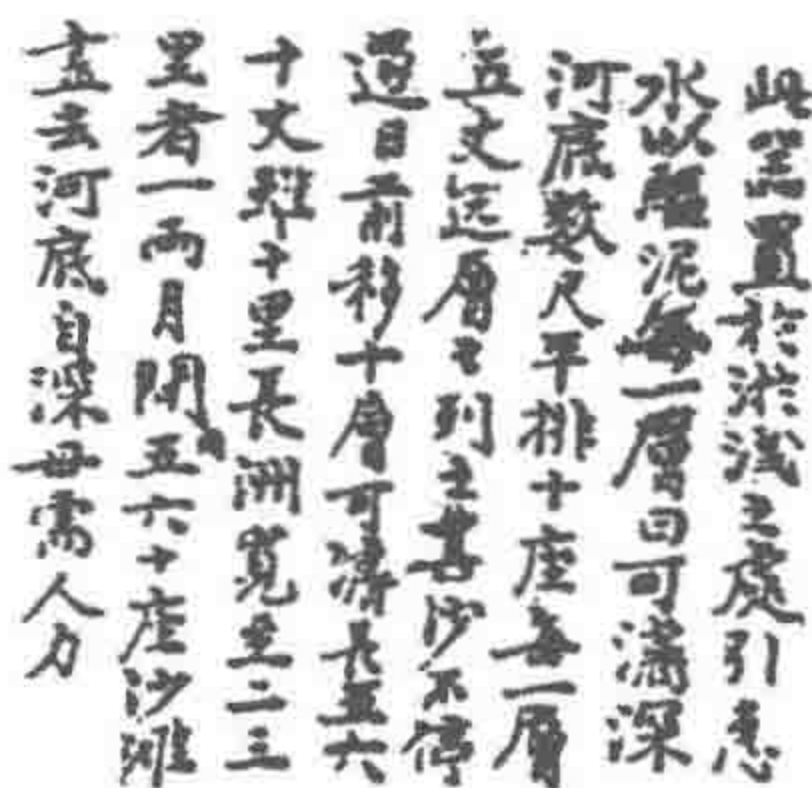 此器置於淤淺之處引急
水以驅泥每一層曰可濬深
河底數尺平排十座每一層
五丈迄層之列之甚沙不停
過日前移十層可濬長五六
十丈雖千里長洲寬至二三
里者一兩月間用五六十座沙灘
盡去河底自深毋需人力